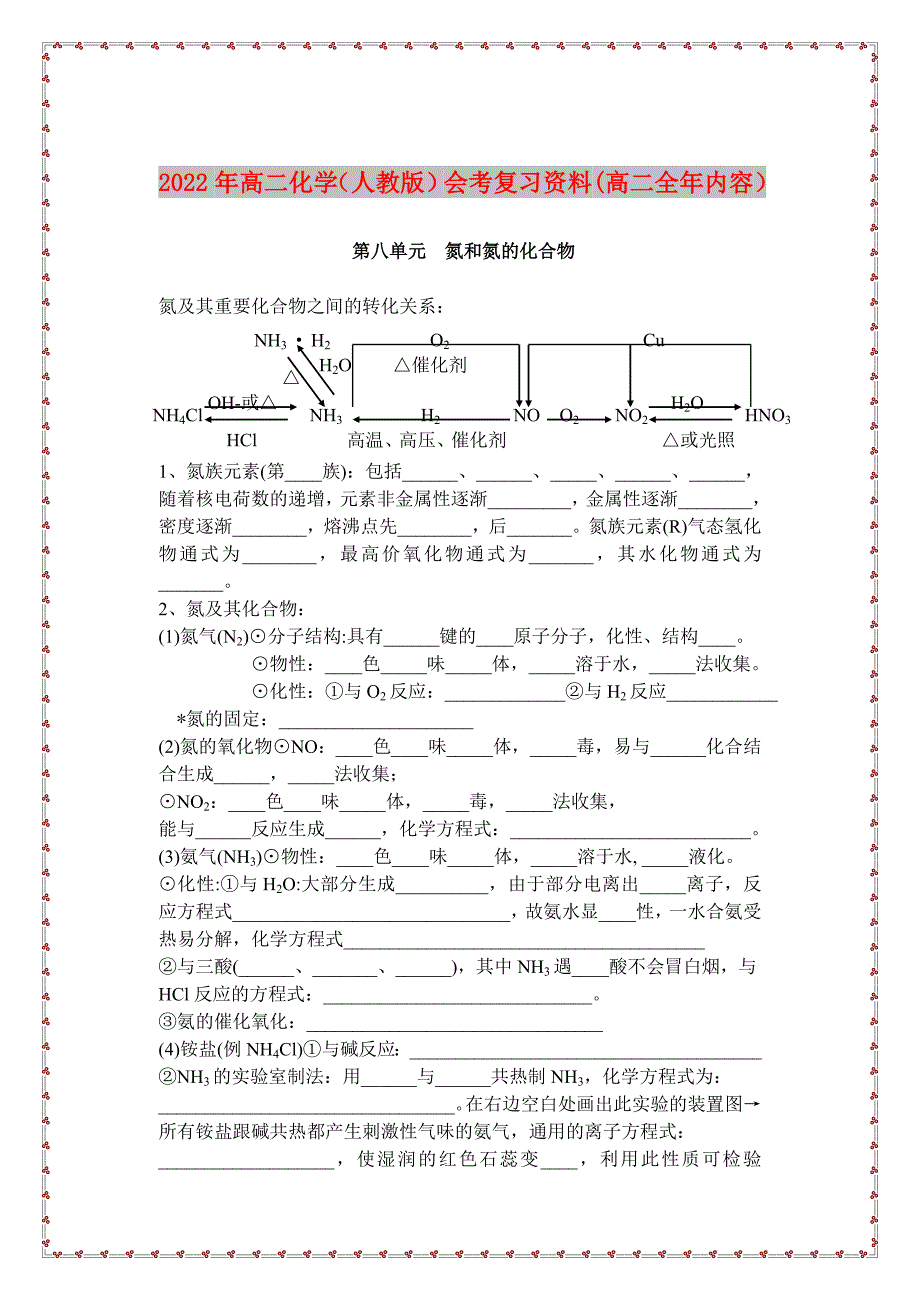 2022年高二化学（人教版）会考复习资料(高二全年内容）
第八单元　氮和氮的化合物
氮及其重要化合物之间的转化关系：
NH3 • H2 O2 Cu
H2O △催化剂
△
OH-或△ H2O
NH4Cl NH3 H2 NO O2 NO2 HNO3
HCl 高温、高压、催化剂 △或光照
1、氮族元素(第____族)：包括______、______、_____、______、______，
随着核电荷数的递增，元素非金属性逐渐_________，金属性逐渐________，
密度逐渐________，熔沸点先________，后_______。氮族元素(R)气态氢化
物通式为________，最高价氧化物通式为_______，其水化物通式为
_______。
2、氮及其化合物：
(1)氮气(N2)⊙分子结构:具有______键的____原子分子，化性、结构____。
⊙物性：____色_____味_____体，_____溶于水，_____法收集。
⊙化性：①与O2反应：_____________②与H2反应____________
*氮的固定：_____________________
(2)氮的氧化物⊙NO：____色____味_____体，_____毒，易与______化合结
合生成______，_____法收集；
⊙NO2：____色____味_____体，_____毒，_____法收集，
能与______反应生成______，化学方程式：__________________________。
(3)氨气(NH3)⊙物性：____色____味_____体，_____溶于水, _____液化。
⊙化性:①与H2O:大部分生成__________，由于部分电离出_____离子，反
应方程式______________________________，故氨水显____性，一水合氨受
热易分解，化学方程式_______________________________________
②与三酸(______、_______、______)，其中NH3遇____酸不会冒白烟，与
HCl反应的方程式：_____________________________。
③氨的催化氧化：________________________________
(4)铵盐(例NH4Cl)①与碱反应：______________________________________
②NH3的实验室制法：用______与______共热制NH3，化学方程式为：
________________________________。在右边空白处画出此实验的装置图→
所有铵盐跟碱共热都产生刺激性气味的氨气，通用的离子方程式：
___________________，使湿润的红色石蕊变____，利用此性质可检验